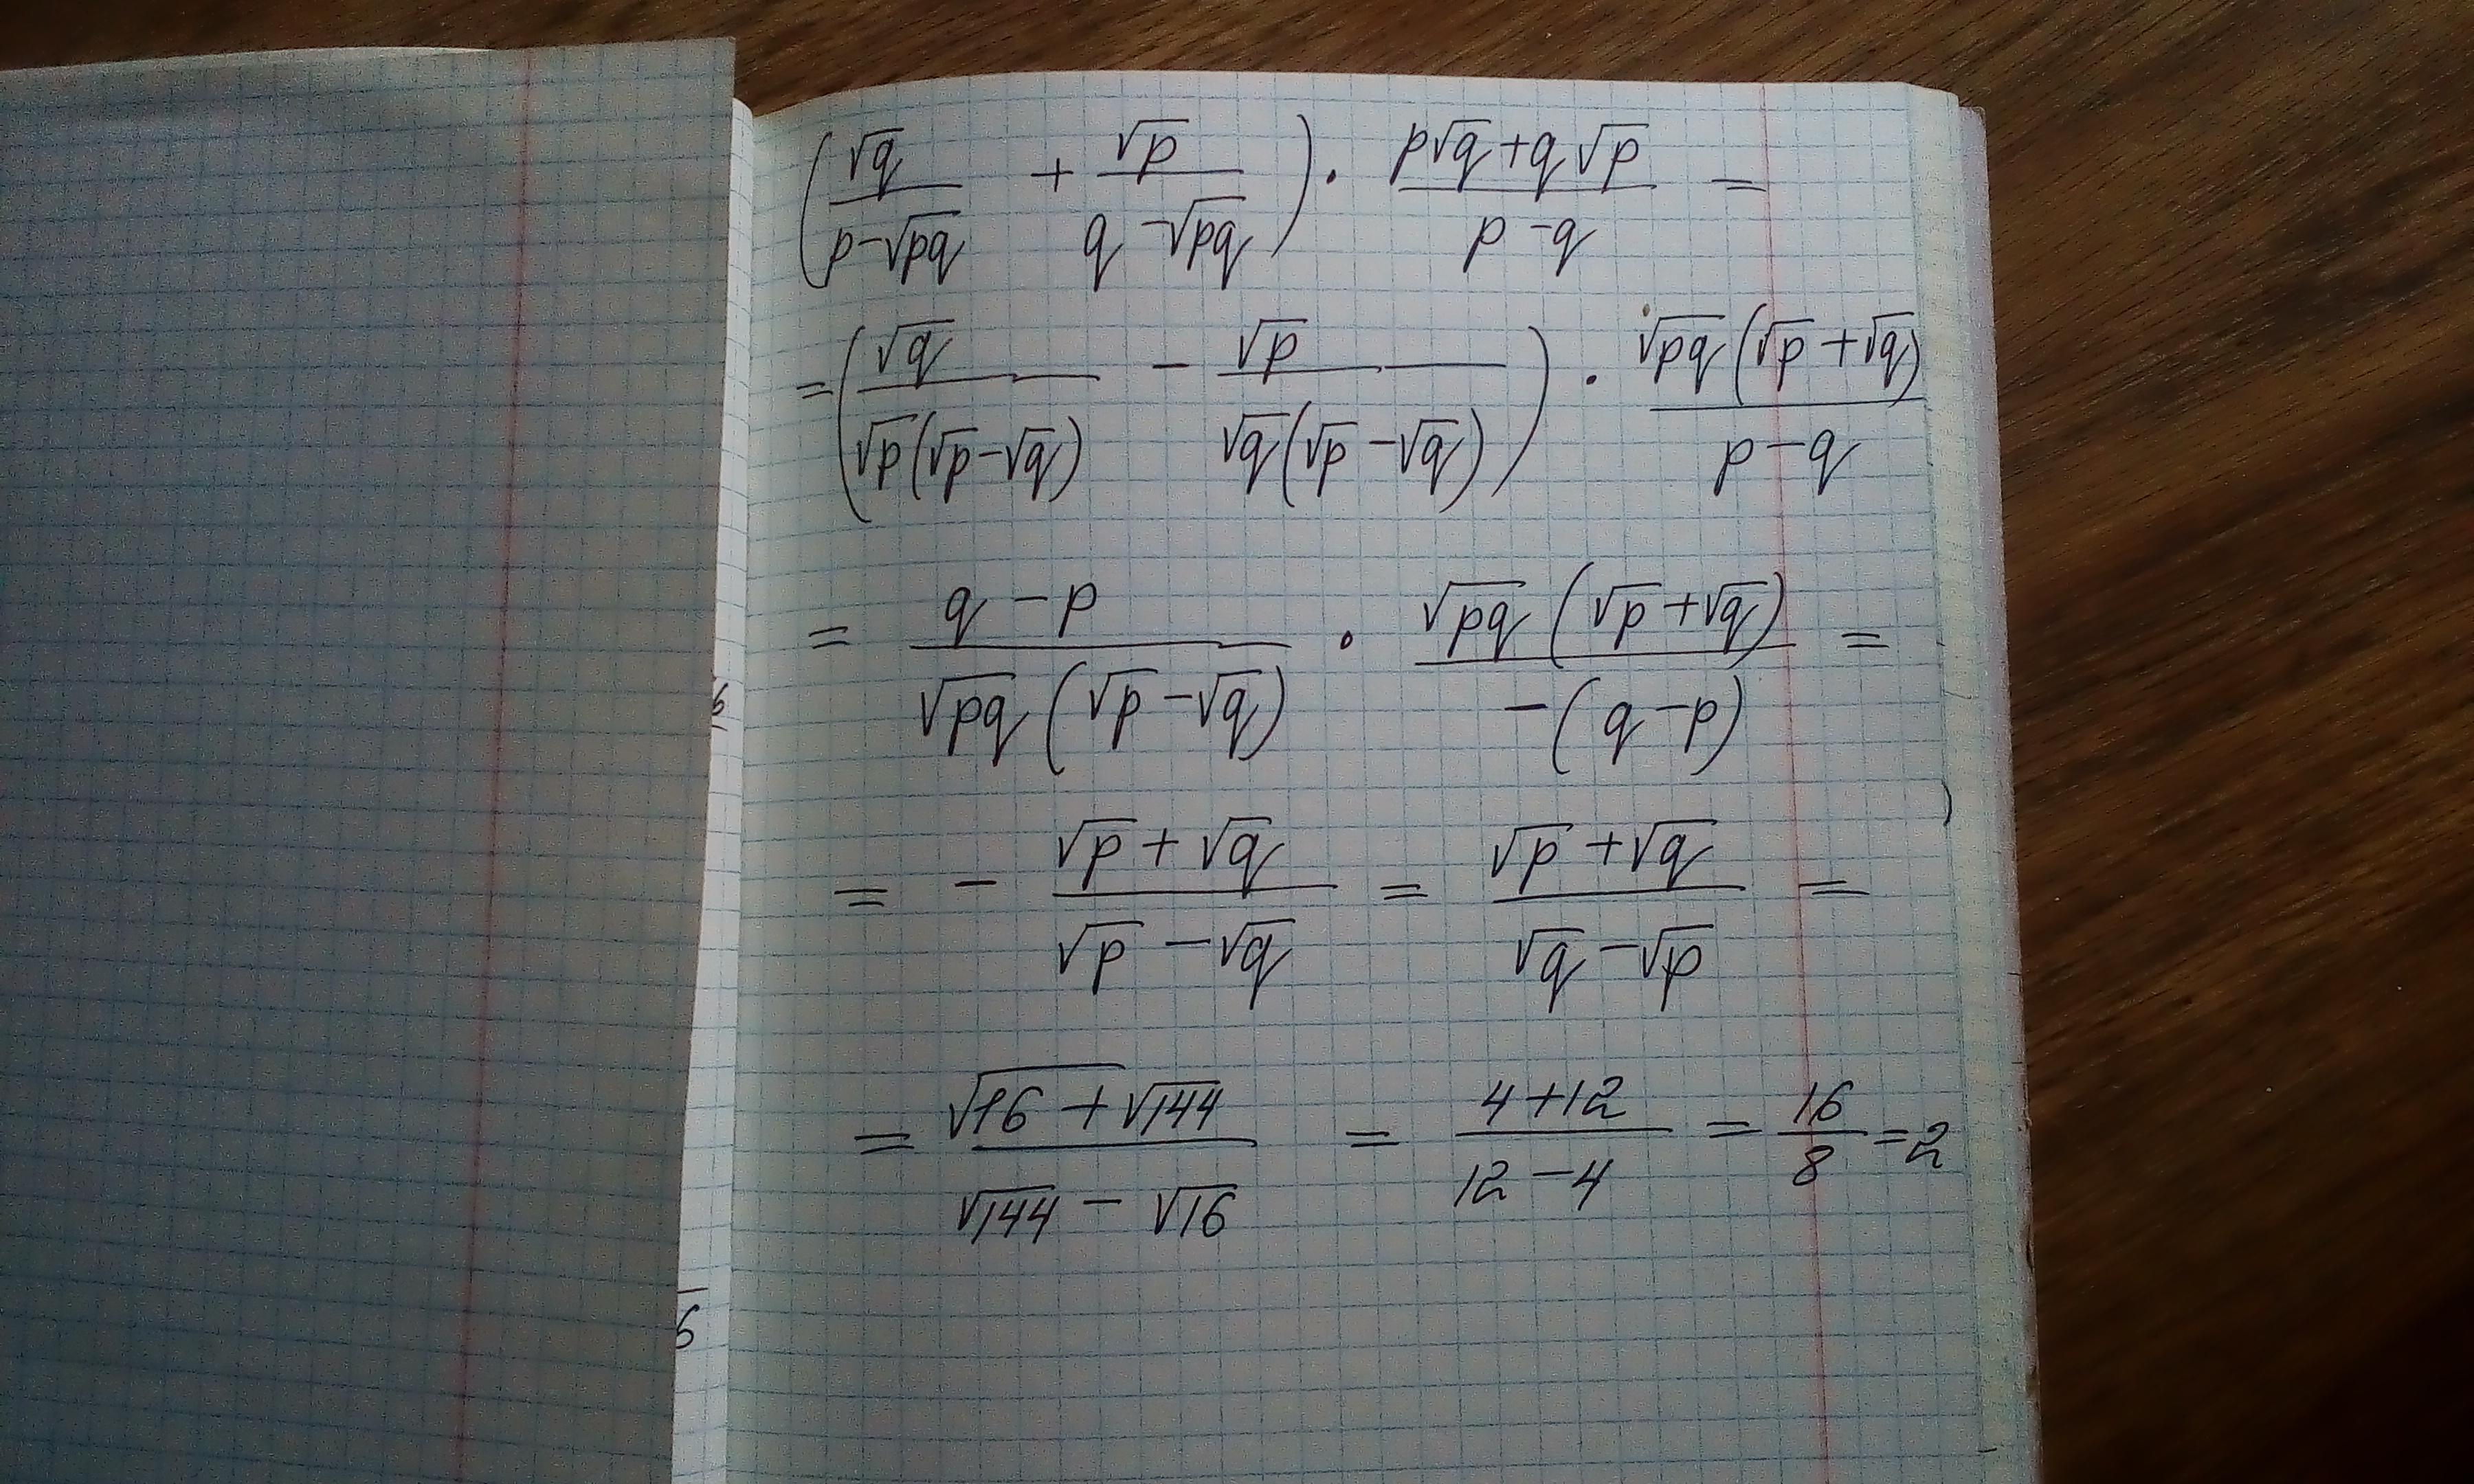 (√q/(p-√pq) + √p/(q-√pq)) · (p√q+q√p)/(p-q) =
=(√q/(√p(√p-√q)) - √p/(√q(√p-√q))) · √pq(√p+√q)/(p-q)
= (q-p)/(√pq(√p-√q)) · √pq(√p+√q)/(-(q-p)) =
= - (√p+√q)/(√p-√q) = (√p+√q)/(√q-√p) =
= (√16+√144)/(√144-√16) = (4+12)/(12-4) = 16/8 = 2
6
6